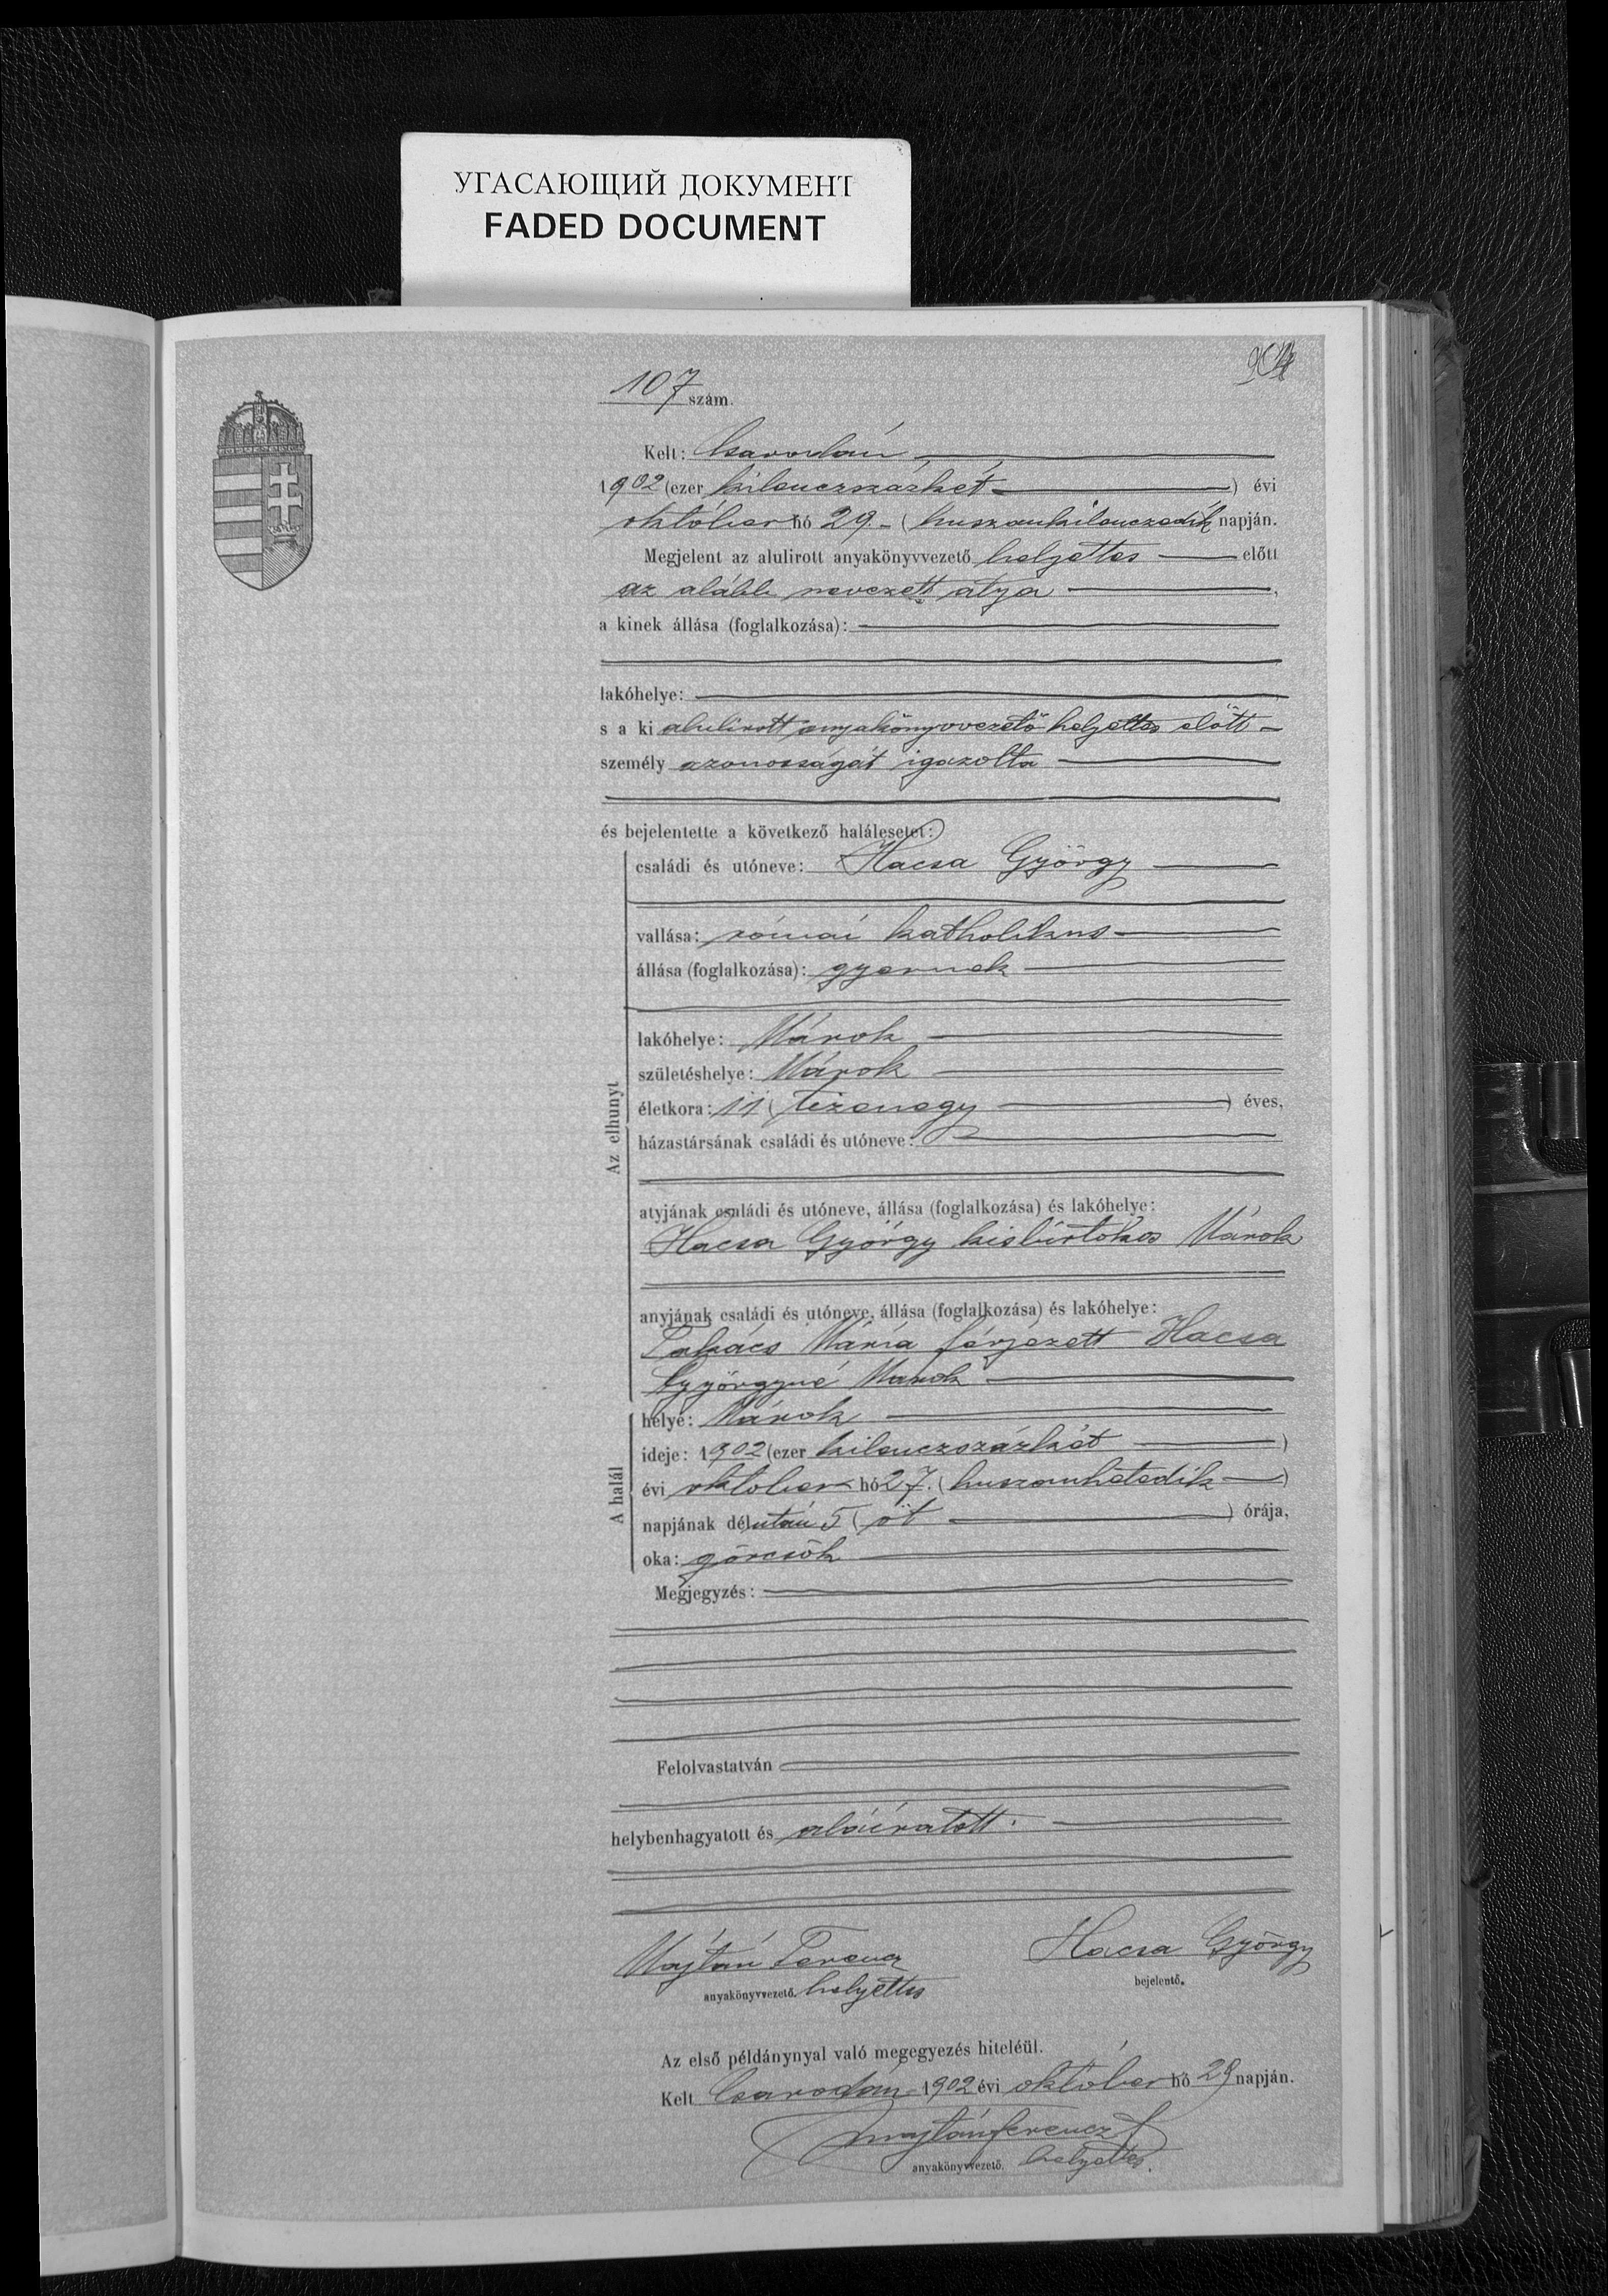 УГАСАЮЩИЙ ДОКУМЕНТ
FADED DOCUMENT
107 szám.
Kelt: Csarodán
1902 (ezer kilenczszázkét) évi
október hó 29. - (huszonkilenczedik napján.
Megjelent az alulirott anyakönyvvezető helyettes előtt
az alább nevezett atya,
a kinek állása (foglalkozása):
lakóhelye:
s a ki alulirott anyakönyvvezető helyettes előtt -
személy azonosságát igazolta
és bejelentette a következő halálesetet:
családi és utóneve: Hacsa György
vallása: római katholikus
állása (foglalkozása): gyermek
lakóhelye: Márok
születéshelye: Márok
életkora: 11 (tizenegy) éves,
házastársának családi és utóneve:
Az elhunyt
atyjának családi és utóneve, állása (foglalkozása) és lakóhelye:
Hacsa György kisbirtokos Márok
anyjának családi és utóneve, állása (foglalkozása) és lakóhelye:
Takács Mária férjezett Hacsa
Györgyné Márok
helye: Márok
ideje: 1902 (ezer kilenczszázkét)
évi október hó 27. (huszonhetedik)
A halál
napjának délután 5 (öt) órája,
oka: görcsök
Megjegyzés:
Felolvastatván
helybenhagyatott és aláiratott.
Majtán Ferencz Hacsa György
anyakönyvvezető. helyettes bejelentő.
Az első példánynyal való megegyezés hiteléül.
Kelt Csarodán 1902 évi október hó 29 napján.
Majtán Ferencz
anyakönyvvezető. helyettes.